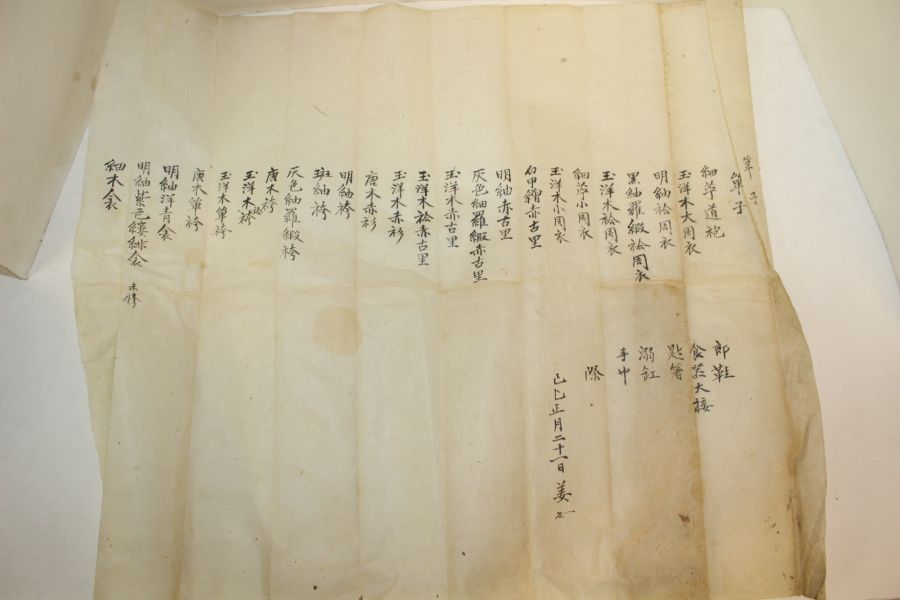 單子
單子
細苧道袍
玉洋木大周衣
明紬袷周衣
黑紬羅緞袷周衣
玉洋木袷周衣
細苧小周衣
玉洋木小周衣
白甲繒赤古里
明紬赤古里
灰色紬羅緞赤古里
玉洋木赤古里
玉洋木袷赤古里
玉洋木赤衫
唐木赤衫
明紬袴
斑紬袴
灰色紬羅緞袴
唐木袴
玉洋木袷袴
玉洋木單袴
唐木單袴
明紬洋青衾
明紬紫色縷緋衾 未修
細木衾
郎鞋
食器大接
匙箸
溺缸
手巾
際
己巳正月二十一日 姜